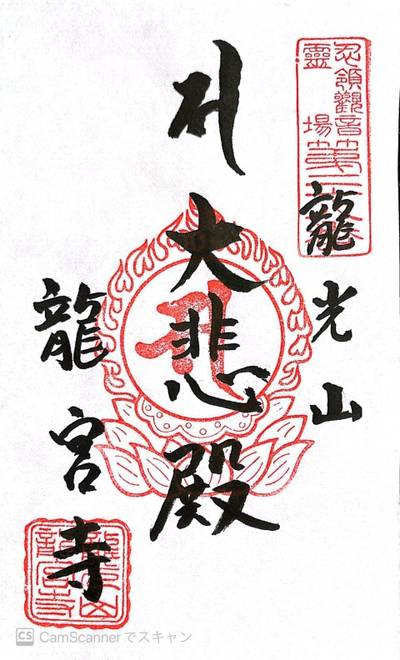 忍領觀音
靈場
龍光山
大悲殿
龍宮寺
CS CamScannerでスキャン